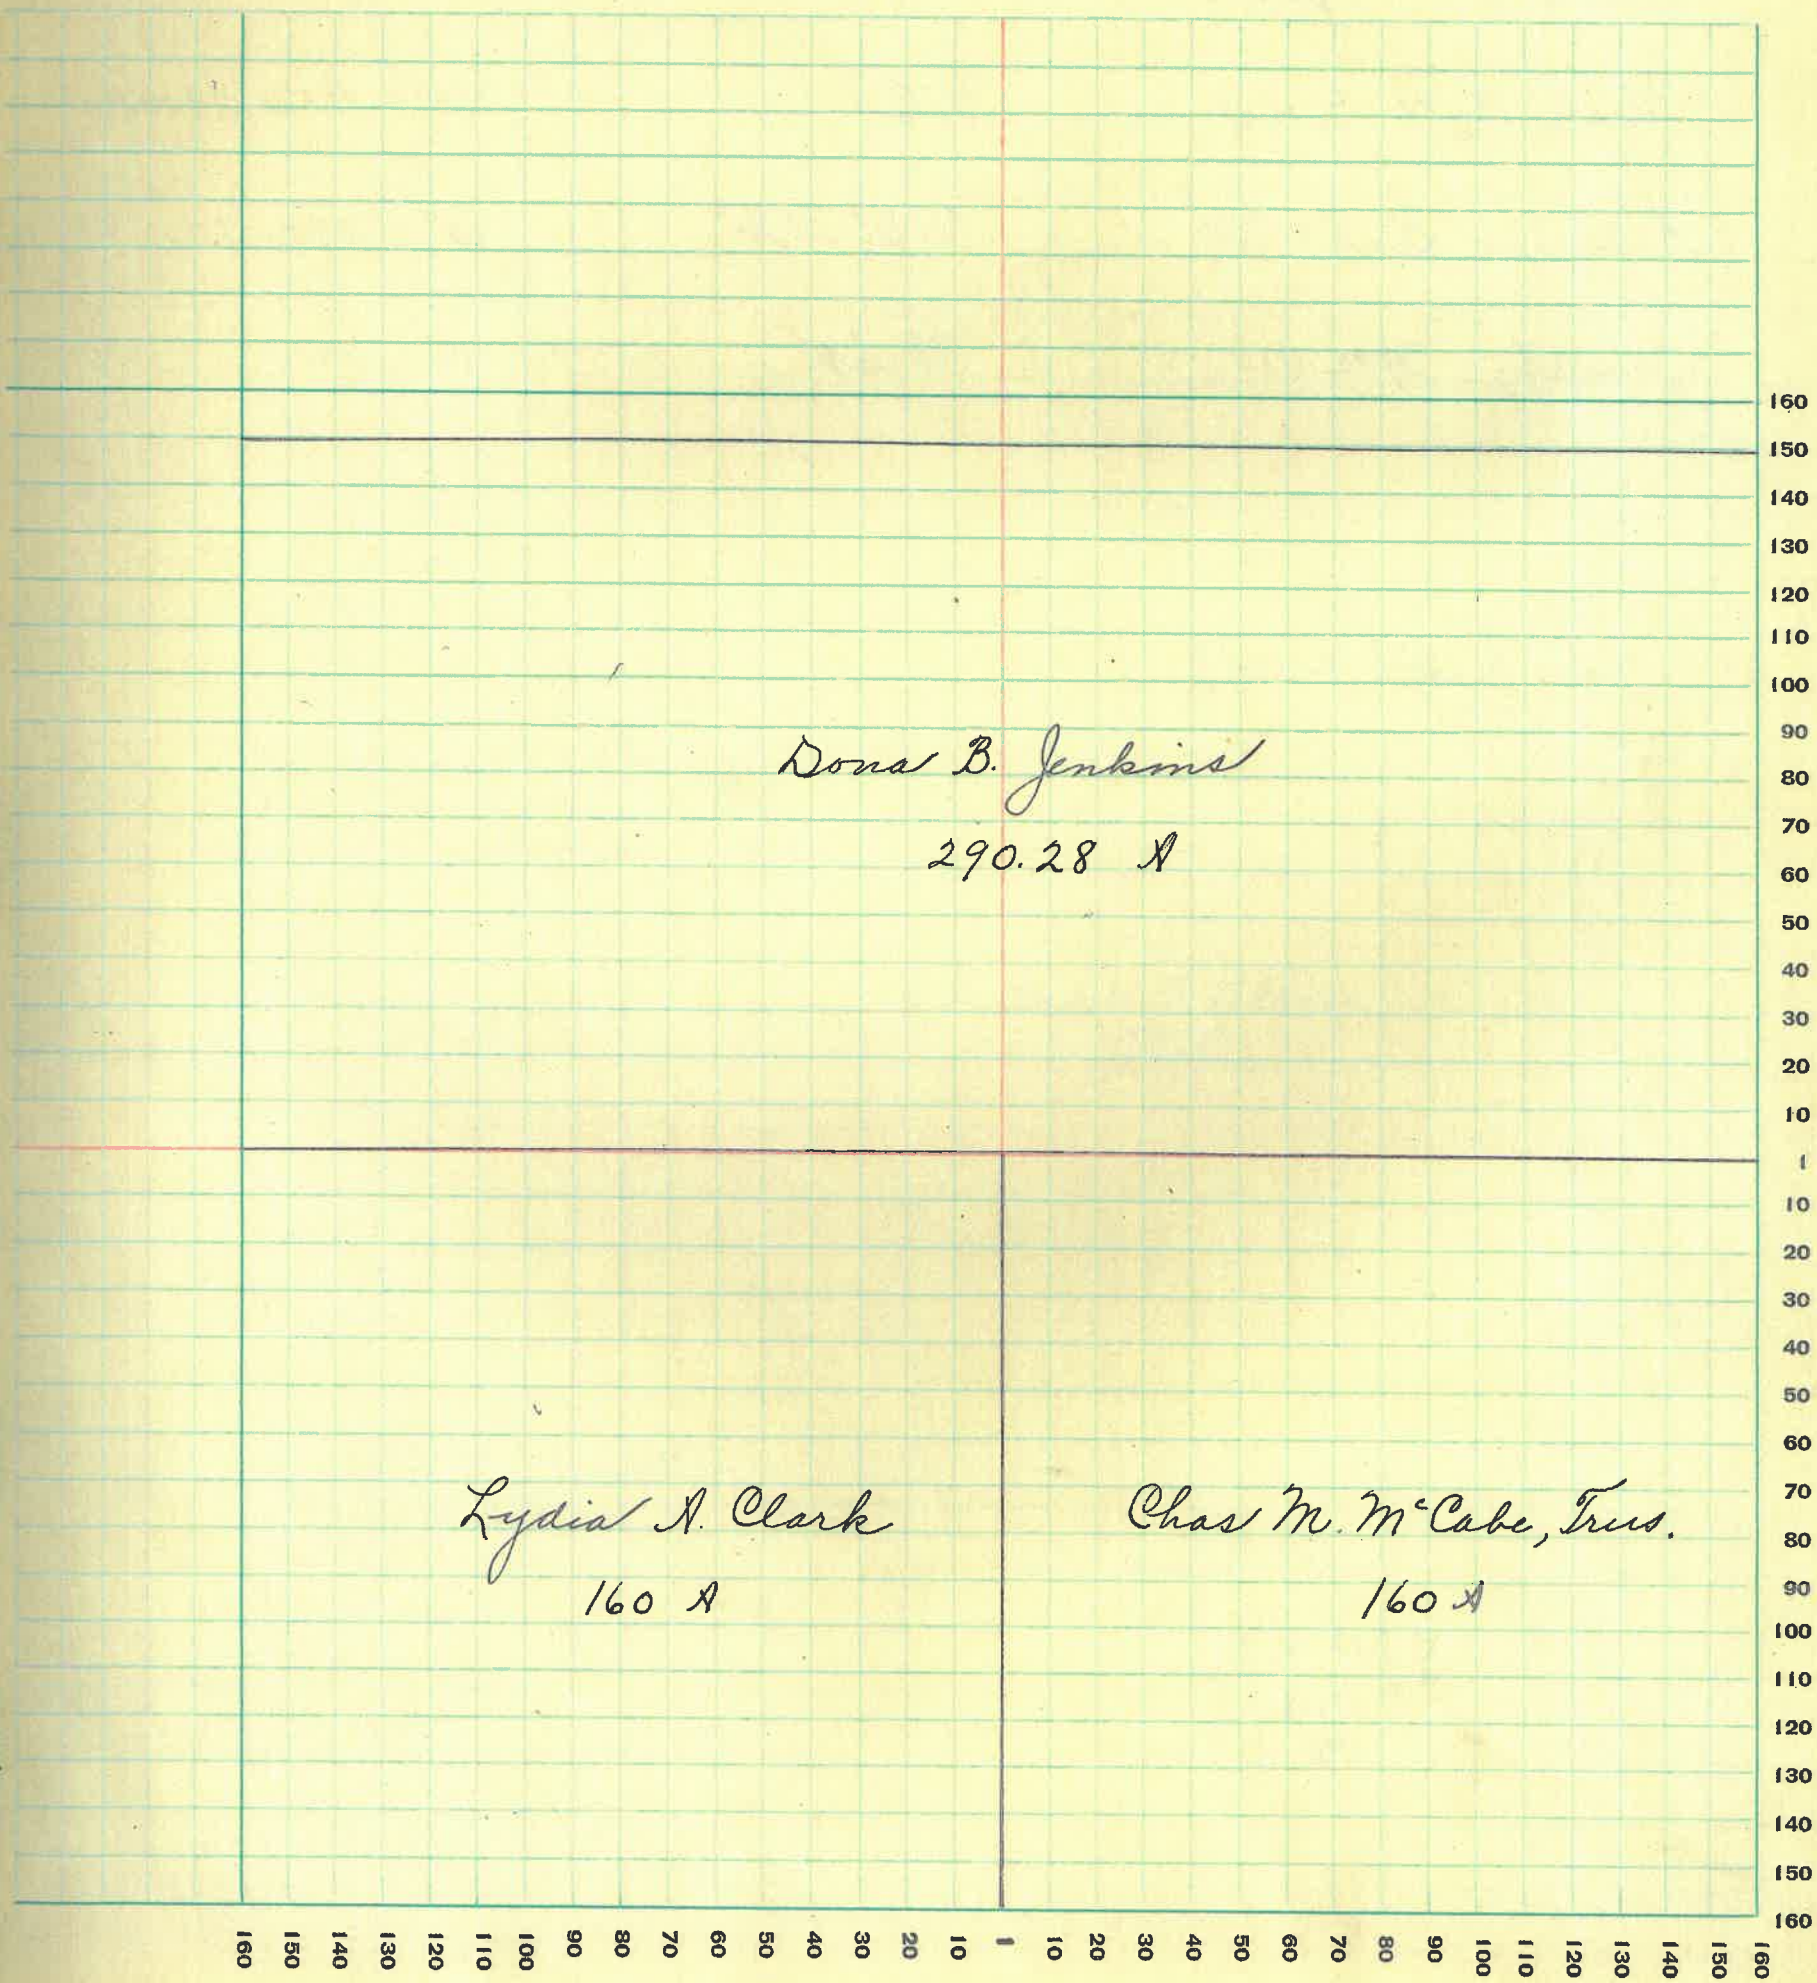 160
150
140
130
120
110
100
90
80
70
60
50
40
30
20
10
1
10
20
30
40
50
60
70
80
90
100
110
120
130
140
150
160
Dona B. Jenkins
290.28 A
Lydia A. Clark
160 A
Chas M. McCabe, Trus.
160 A
160 150 140 130 120 110 100 90 80 70 60 50 40 30 20 10 1 10 20 30 40 50 60 70 80 90 100 110 120 130 140 150 160